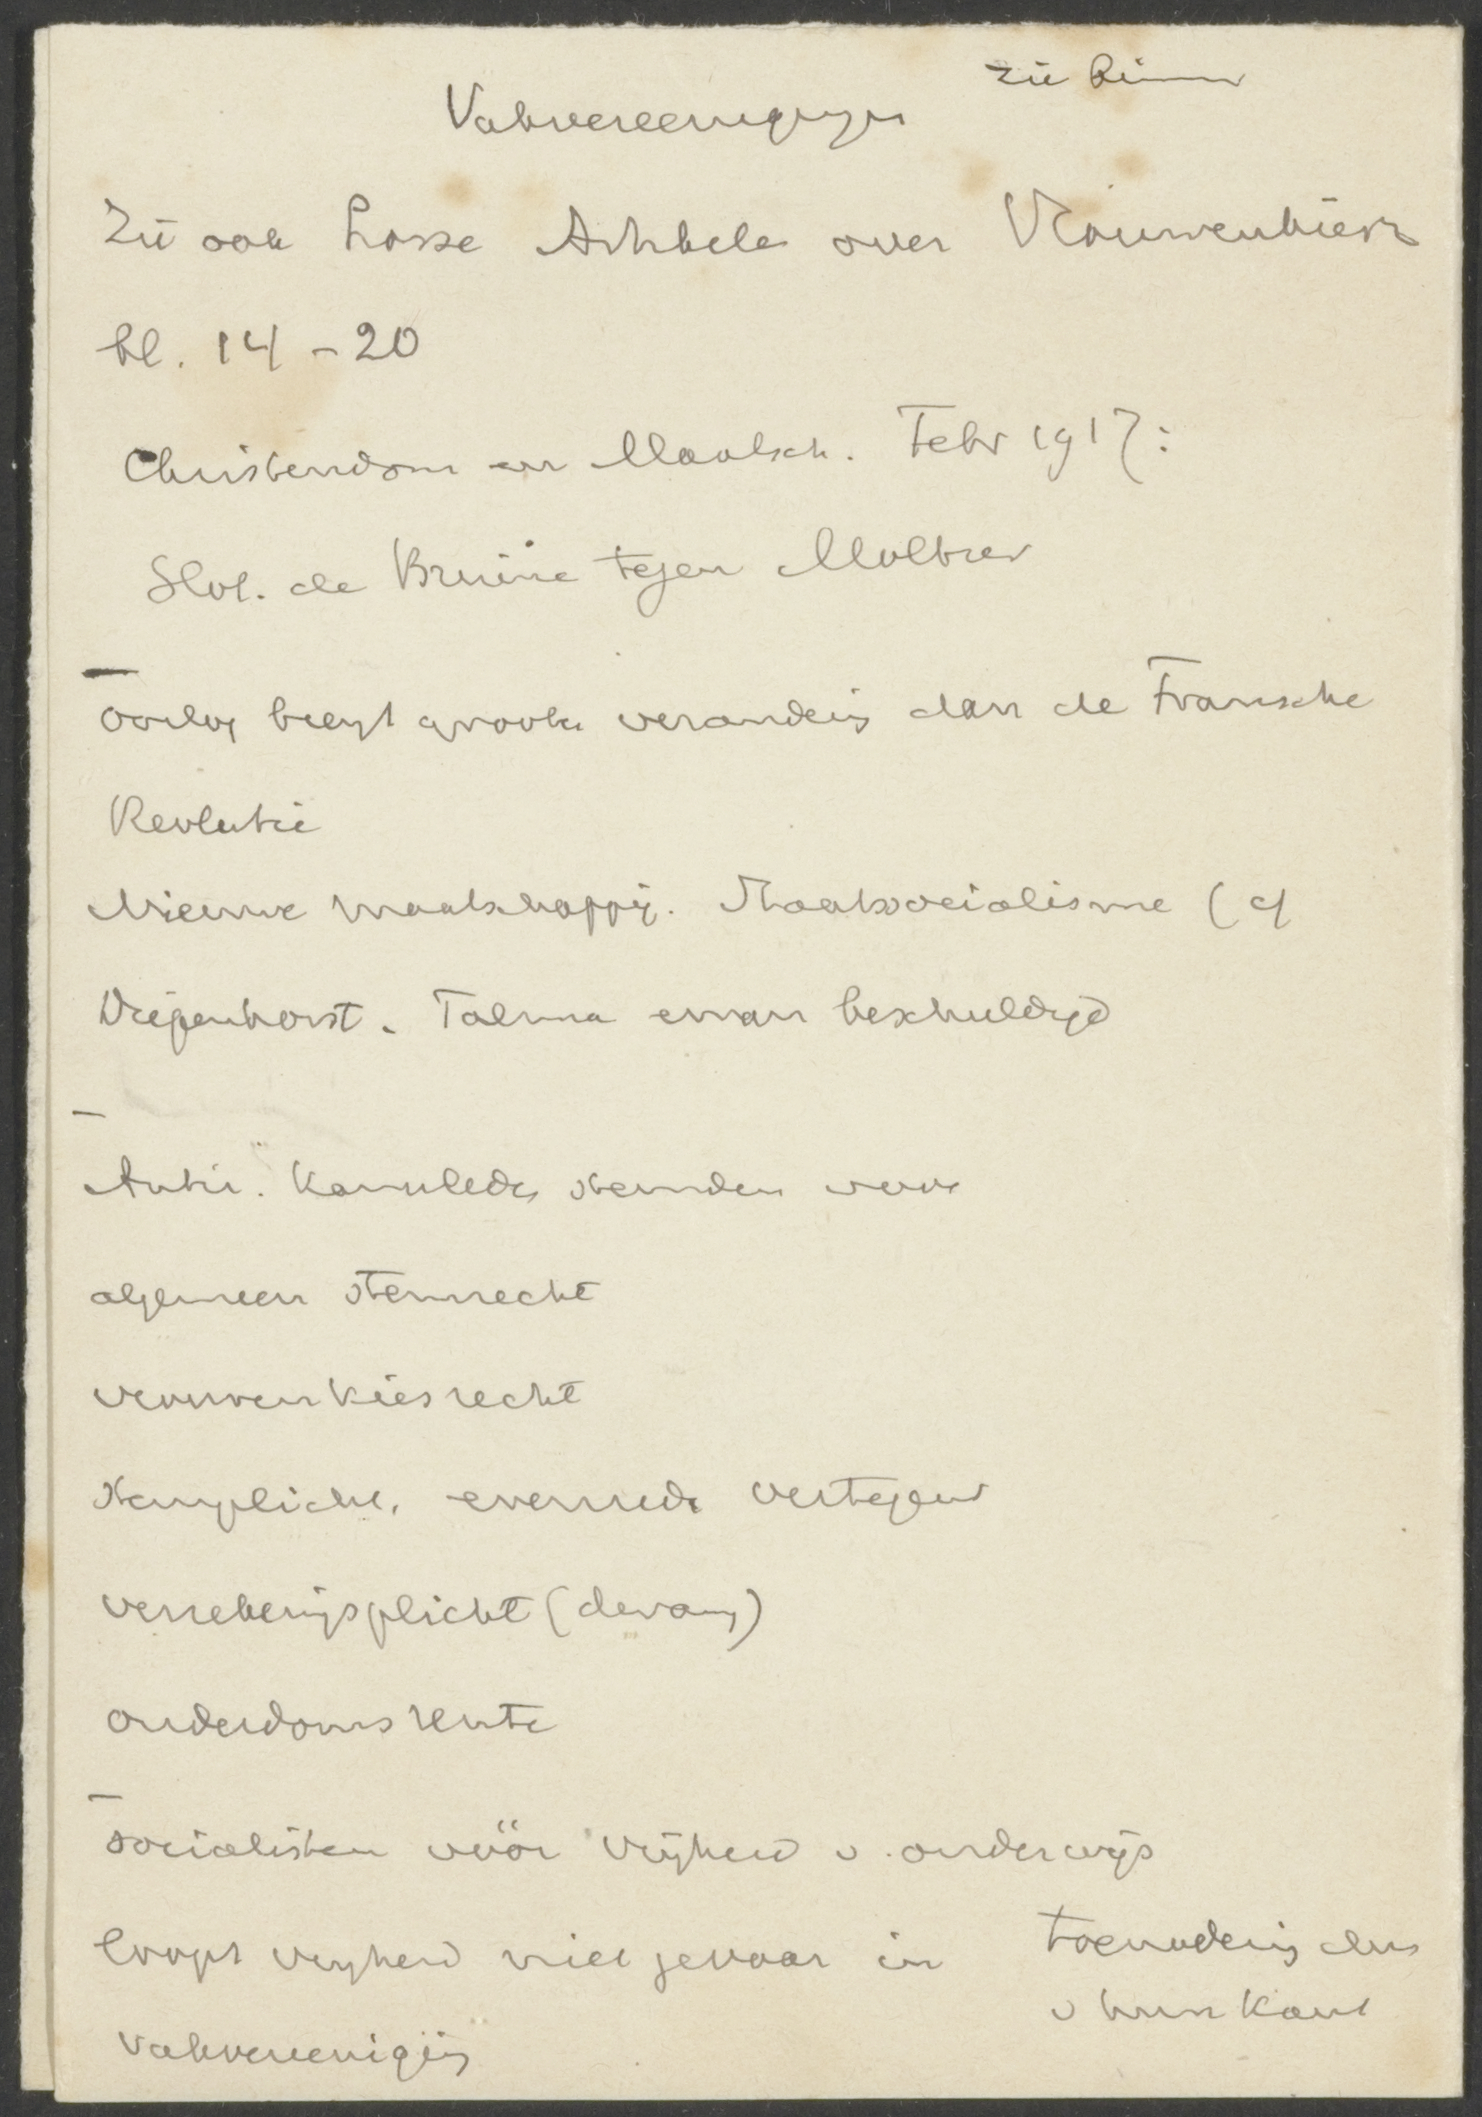 zie binnen
Vakvereenigingen
Zie ook Losse Artikele over Vrouwenkiesr
bl. 14 - 20
Christendom en Maatsch. Febr 1917:
Slot. de Bruine tegen
Oorlog brengt groote verandering dan de Fransche
Revolutie
Nieuwe maatschappij. Staatssocialisme (cf
Diepenhorst. Talma ervan beschuldigd
Antir. Kamerleden stemden voor
algemeen stemrecht
vrouwenkiesrecht
stemplicht, evenredi vertegenw
verzekeringsplicht (dwang)
ouderdomsrente
Socialisten vóór vrijheid v. onderwijs
loopt vrijheid niet gevaar in
vakvereeniging
toenadering dus
v hun kant